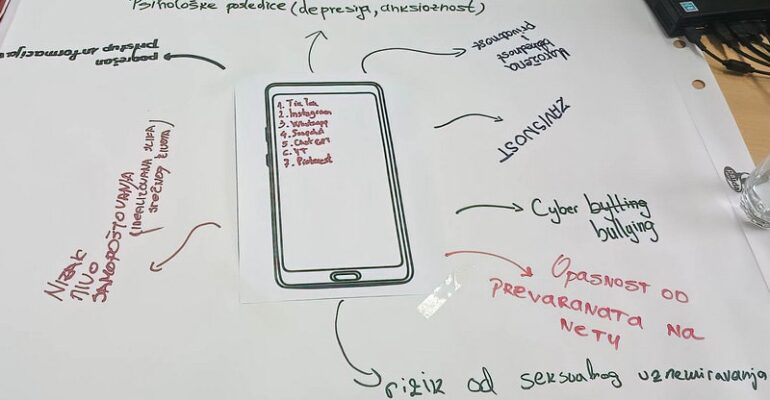 Psihološke posledice (depresija, anksioznost)
pogrešan
pristup informacija
Ugrožena
bezbednost
i
privatnost
ZAVISNOST
1. TikTok
2. Instagram
3. Whatsapp
4. Snapchat
5. Chat GPT
6. YT
7. Pinterest
Cyber bytting
bullying
NIZAK
NIVO
SAMOPOŠTOVANJA
(IDEALIZOVANA SLIKA
SREĆNOG ŽIVOTA)
Opasnost od
prevaranata na
netu
rizik od seksualnog uznemiravanja